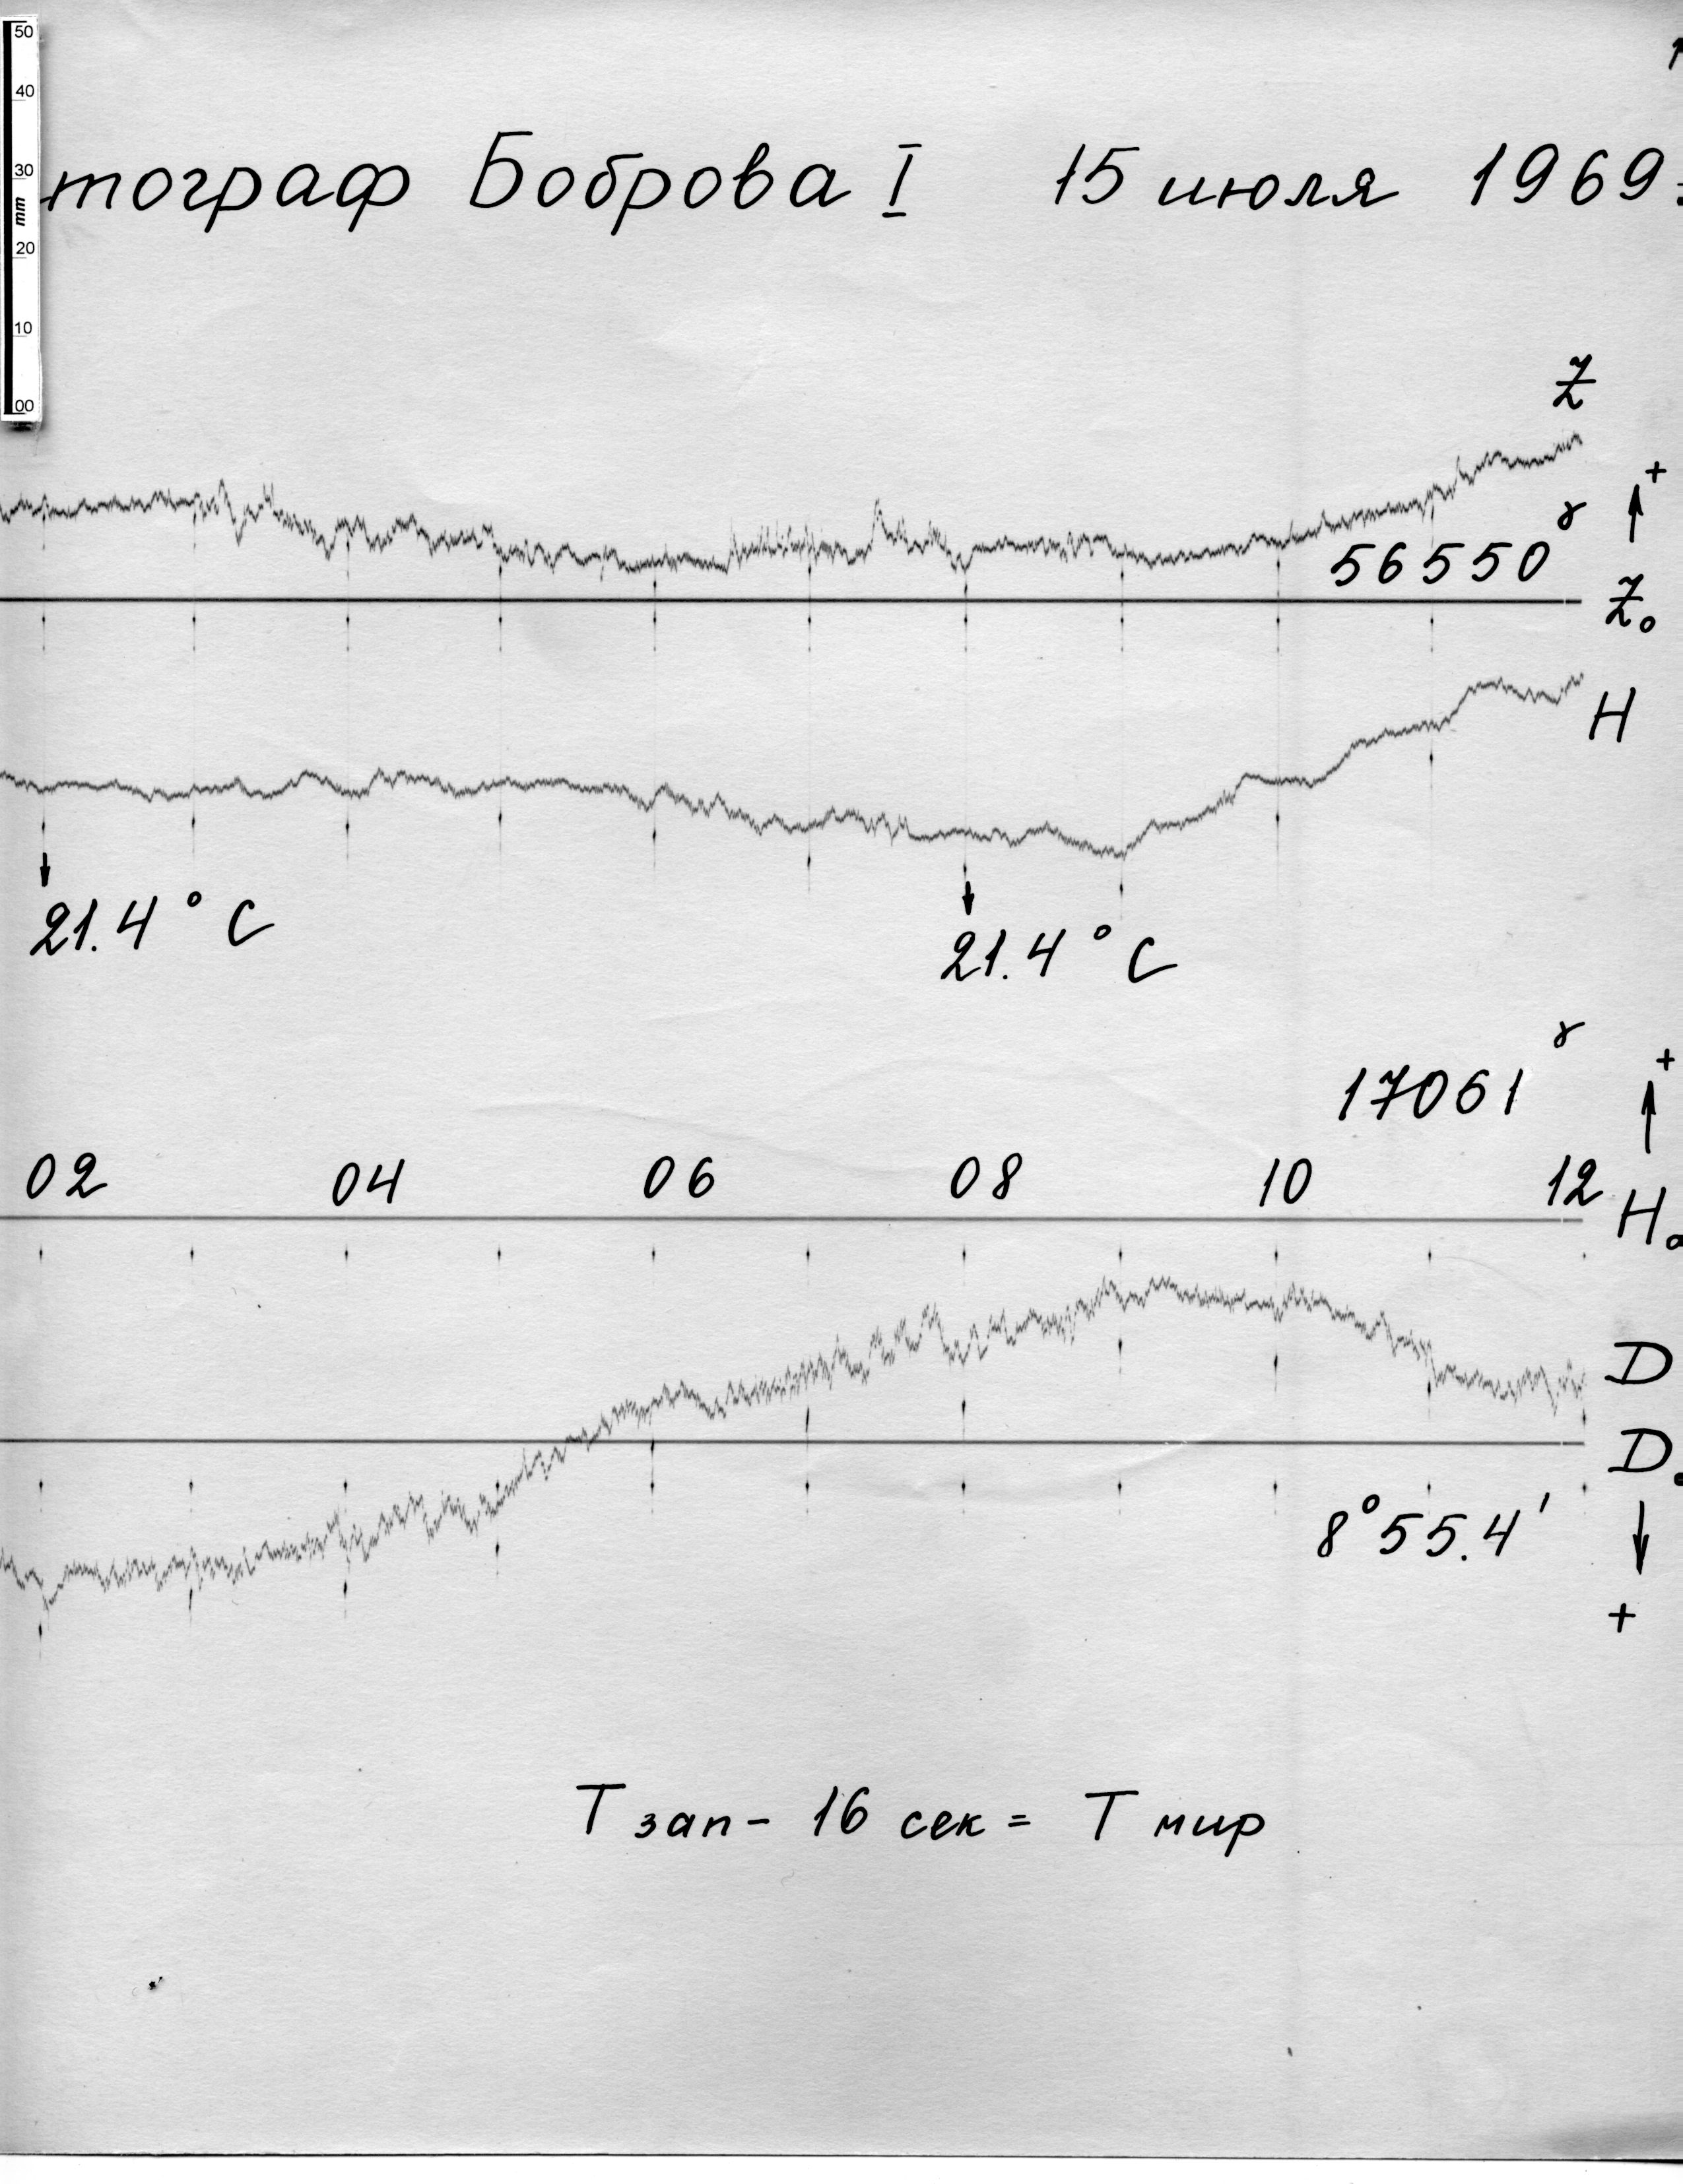 50
40
30
mm
20
10
00
тограф Боброва I 15 июля 1969
Z
+
56550 γ
Z₀
H
21.4° C
21.4° C
17061 γ
+
02 04 06 08 10 12
H₀
D
D₀
8° 55.4'
+
Т зап - 16 сек = Т мир